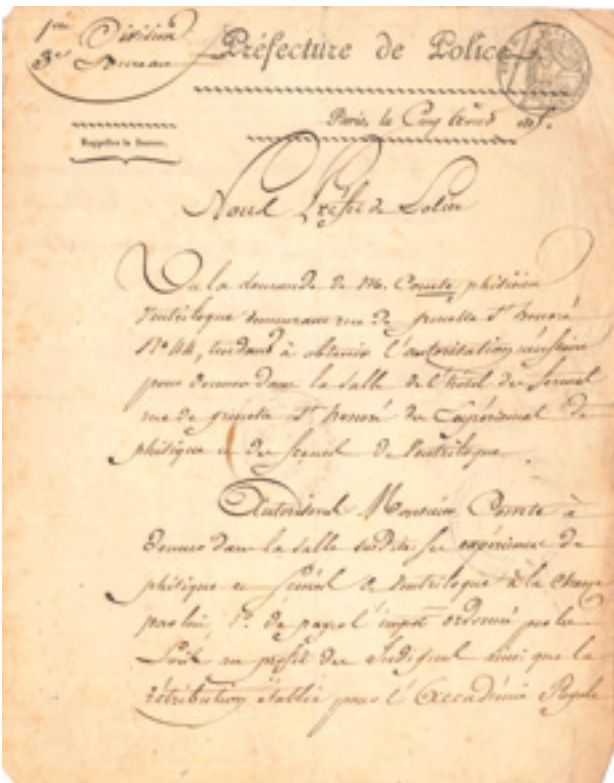 1ere Division
3e Bureau
Préfecture de Police.
Paris, le Cinq
Nous Préfet de Police
Vu la demande de M. Comte phisicien
Ventriloque demeurant rue de grenelle St honoré
N° 44, tendant à obtenir l'autorisation nécessaire
pour donner dans la Salle de l'hotel des fermes
rue de grenelle St honoré des Expériences de
phisique et des Scenes de Ventriloque.
Autorisons Monsieur Comte à
donner dans la Salle susdite ses expériences de
phisique et Scenes de Ventriloque à la charge
par lui, 1° de payer l'impot ordonné par les
Loix au profit des Indigens ainsi que la
rétribution établie pour l'Accadémie Royale